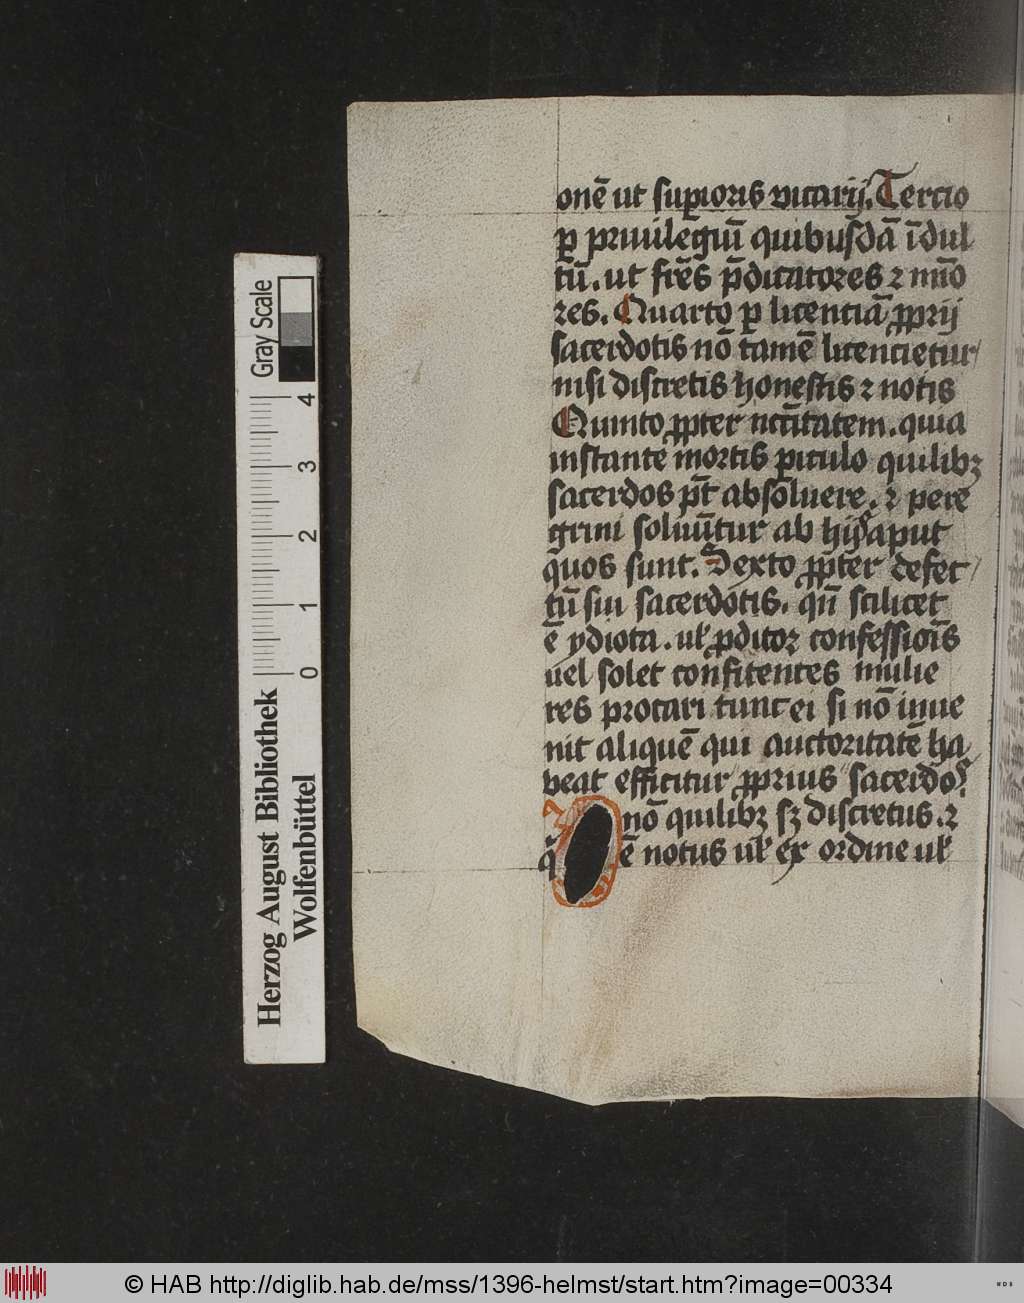 onē ut suꝑioris vicarij. Tercio
ꝑ priuilegiū quibusdā īdul
tū. ut fr̄es p̄dicatores ⁊ mīo
res. Quarto ꝑ licenciā ꝓprij
sacerdotis nō tamē licencietur
nisi discretis honestis ⁊ notis
Quinto ꝓpter nccītatem. quia
instante mortis ꝑiculo quilibꝫ
sacerdos pt̄ absoluere. ⁊ pere
grini soluūtur ab hijs aput
quos sunt. Sexto ꝓpter defec
tū sui sacerdotis. qn̄ scilicet
ē ydiota. ul̉ ꝓditor confessiōis
uel solet confitentes mulie
res procari tunc ei si nō inue
nit aliquē qui auctoritatē ha
beat efficitur ꝓprius sacerdos
nō quilibꝫ sꝫ discretus. ⁊
q̄ ē notus ul̉ ex ordine ul̉
Gray Scale
0 1 2 3 4
Herzog August Bibliothek
Wolfenbüttel
© HAB http://diglib.hab.de/mss/1396-helmst/start.htm?image=00334
WDB